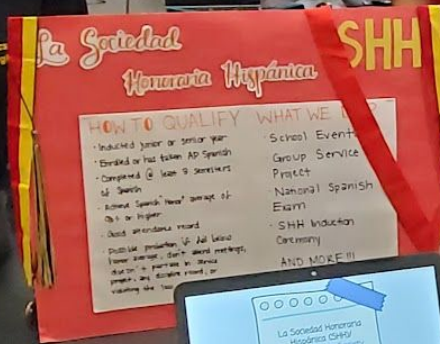 La Sociedad
Honoraria Hispánica
SHH
HOW TO QUALIFY
· Inducted junior or senior year
· Enrolled or has taken AP Spanish
· Completed @ least 3 semesters
of Spanish
· Achieve Spanish "Honor" average of
or higher
· Good attendance record
· Possible probation if fall below
honor average, don't attend meetings,
partake in service
project, any discipline record, or
violating the
WHAT WE
· School Events
· Group Service
Project
· National Spanish
Exam
· SHH Induction
Ceremony
AND MORE!!!
La Sociedad Honoraria
Hispánica (SHH)